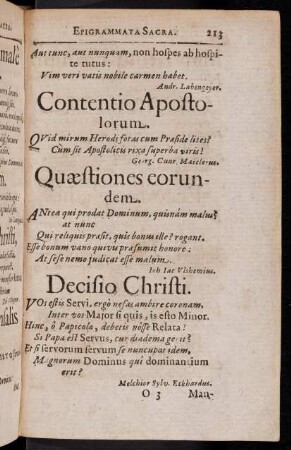 EPIGRAMMATA SACRA. 213
Aut tunc, aut nunquam, non hospes ab hospi-
te tutus:
Vim veri vatis nobile carmen habet.
Andr. Labengeyer.
Contentio Aposto-
lorum.
QVid mirum Herodi foras cum Præside lites?
Cum sit Apostolicis rixa superba viris!
Georg. Cunr. Maiclerus.
Quæstiones eorun-
dem.
ANtea qui prodat Dominum, quinam malus?
at nunc
Qui reliquis præsit, quis bonus esse? rogant.
Esse bonum vano quivis præsumit honore:
At sese nemo judicat esse malum.
Ioh Iac
Decisio Christi.
VOs estis Servi, ergò nefas ambire coronam.
Inter vos Major si quis, is esto Minor.
Hinc, ô Papicola, debetis nôsse Relata!
Si Papa est Servus, cur diadema gerit?
Et si servorum servum se nuncupat idem,
Magnorum Dominus qui dominantium
erit?
Melchior Sylv. Eckhardus.
O 3 Mau-